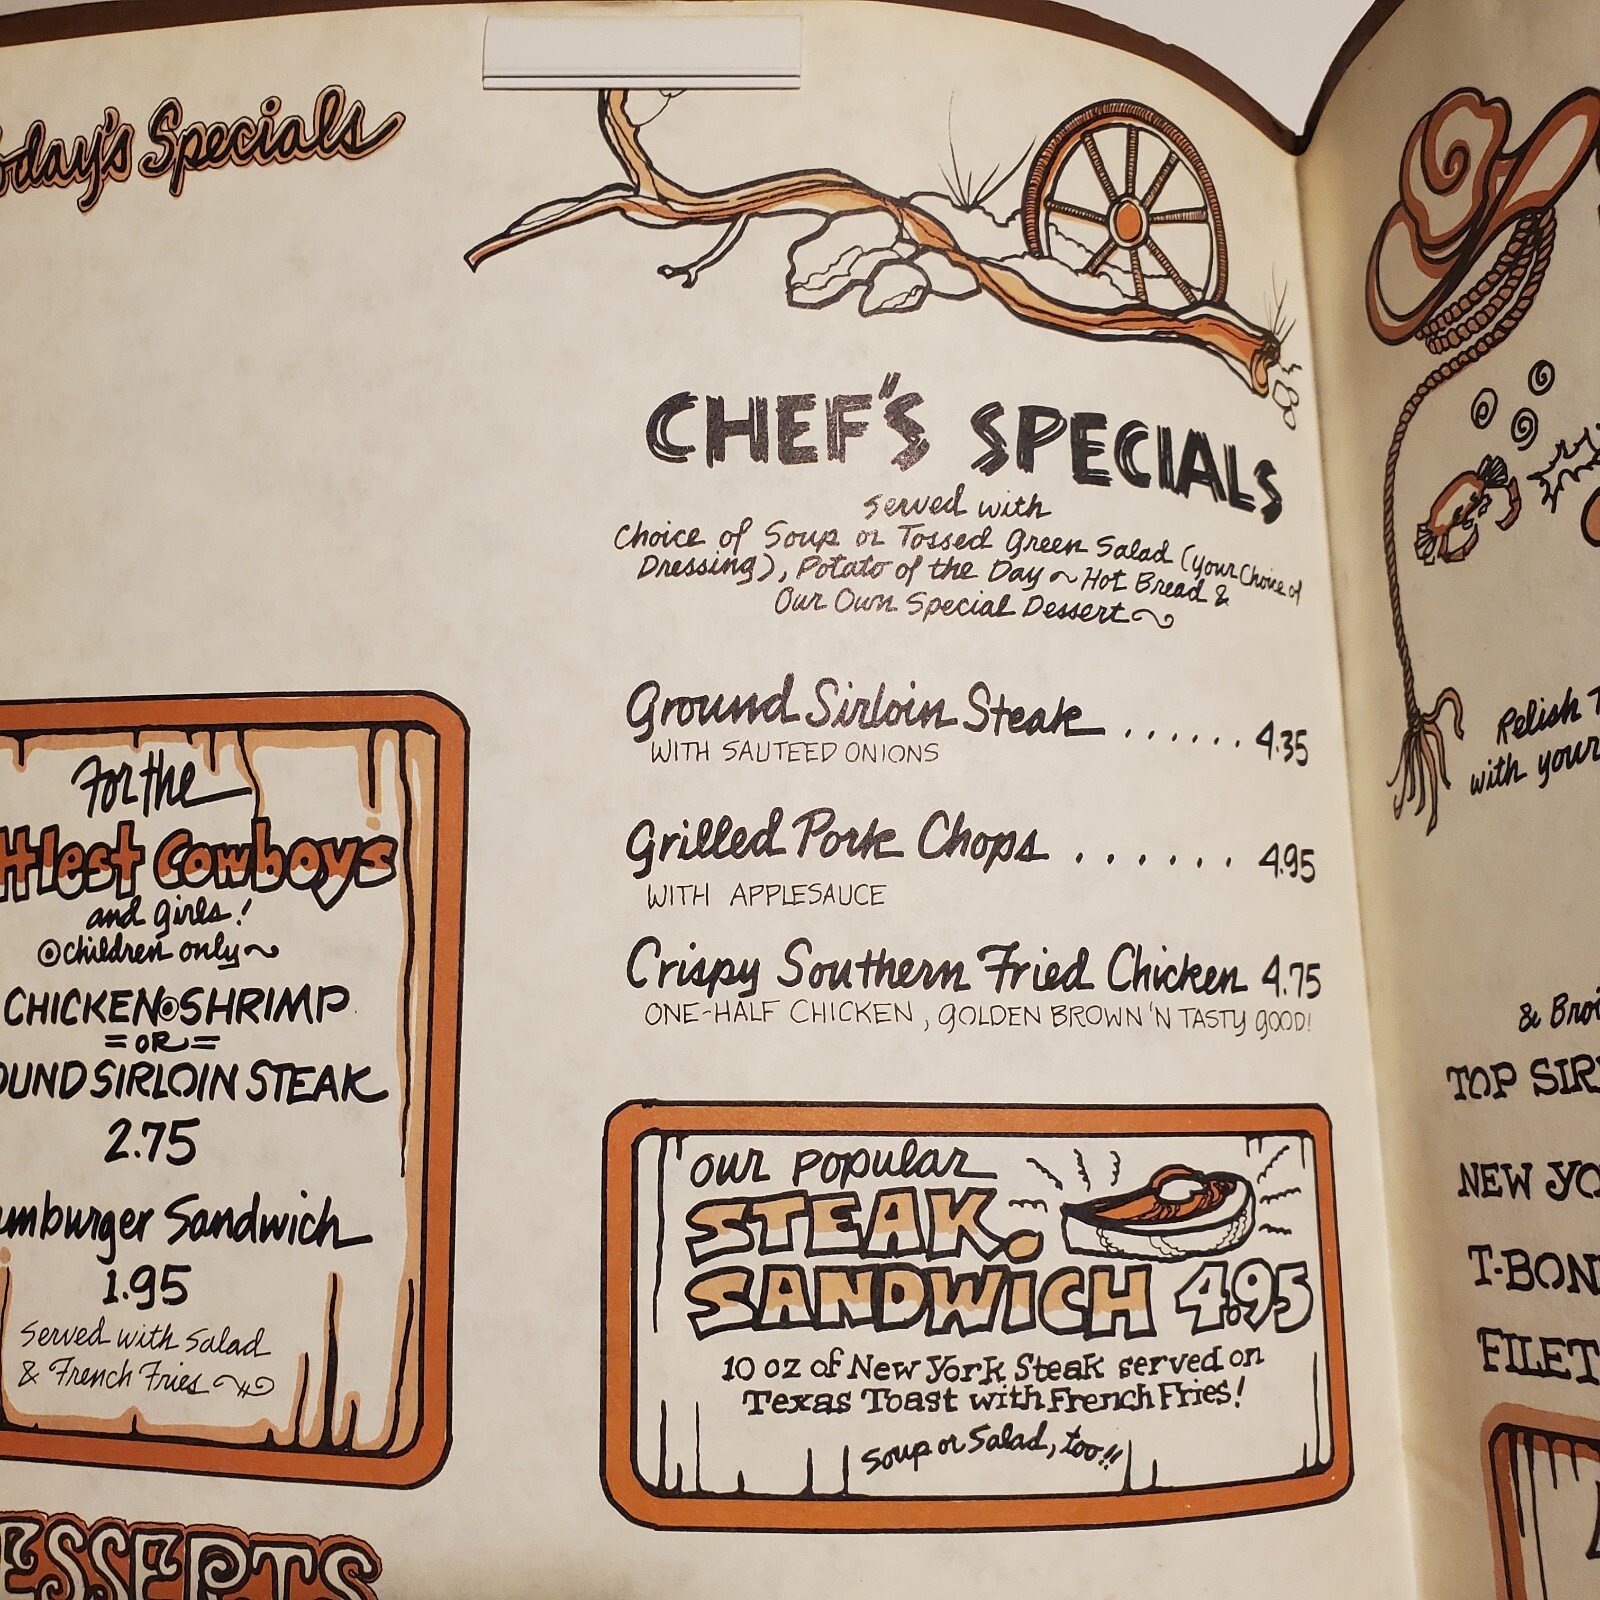 Today's Specials
CHEF'S SPECIALS
served with
Choice of Soup or Tossed Green Salad (your Choice of
Dressing), Potato of the Day ~ Hot Bread &
Our Own Special Dessert ~
Ground Sirloin Steak ...... 4.35
WITH SAUTEED ONIONS
Grilled Pork Chops ...... 4.95
WITH APPLESAUCE
Crispy Southern Fried Chicken 4.75
ONE-HALF CHICKEN, GOLDEN BROWN 'N TASTY GOOD!
our popular
STEAK
SANDWICH 4.95
10 oz of New York Steak served on
Texas Toast with French Fries!
Soup or Salad, too!!
For the
ttlest Cowboys
and girls!
children only ~
CHICKEN SHRIMP
= OR =
OUND SIRLOIN STEAK
2.75
amburger Sandwich
1.95
served with Salad
& French Fries
ESSERTS
Relish T
with your
& Broi
TOP SIR
NEW YO
T-BON
FILET